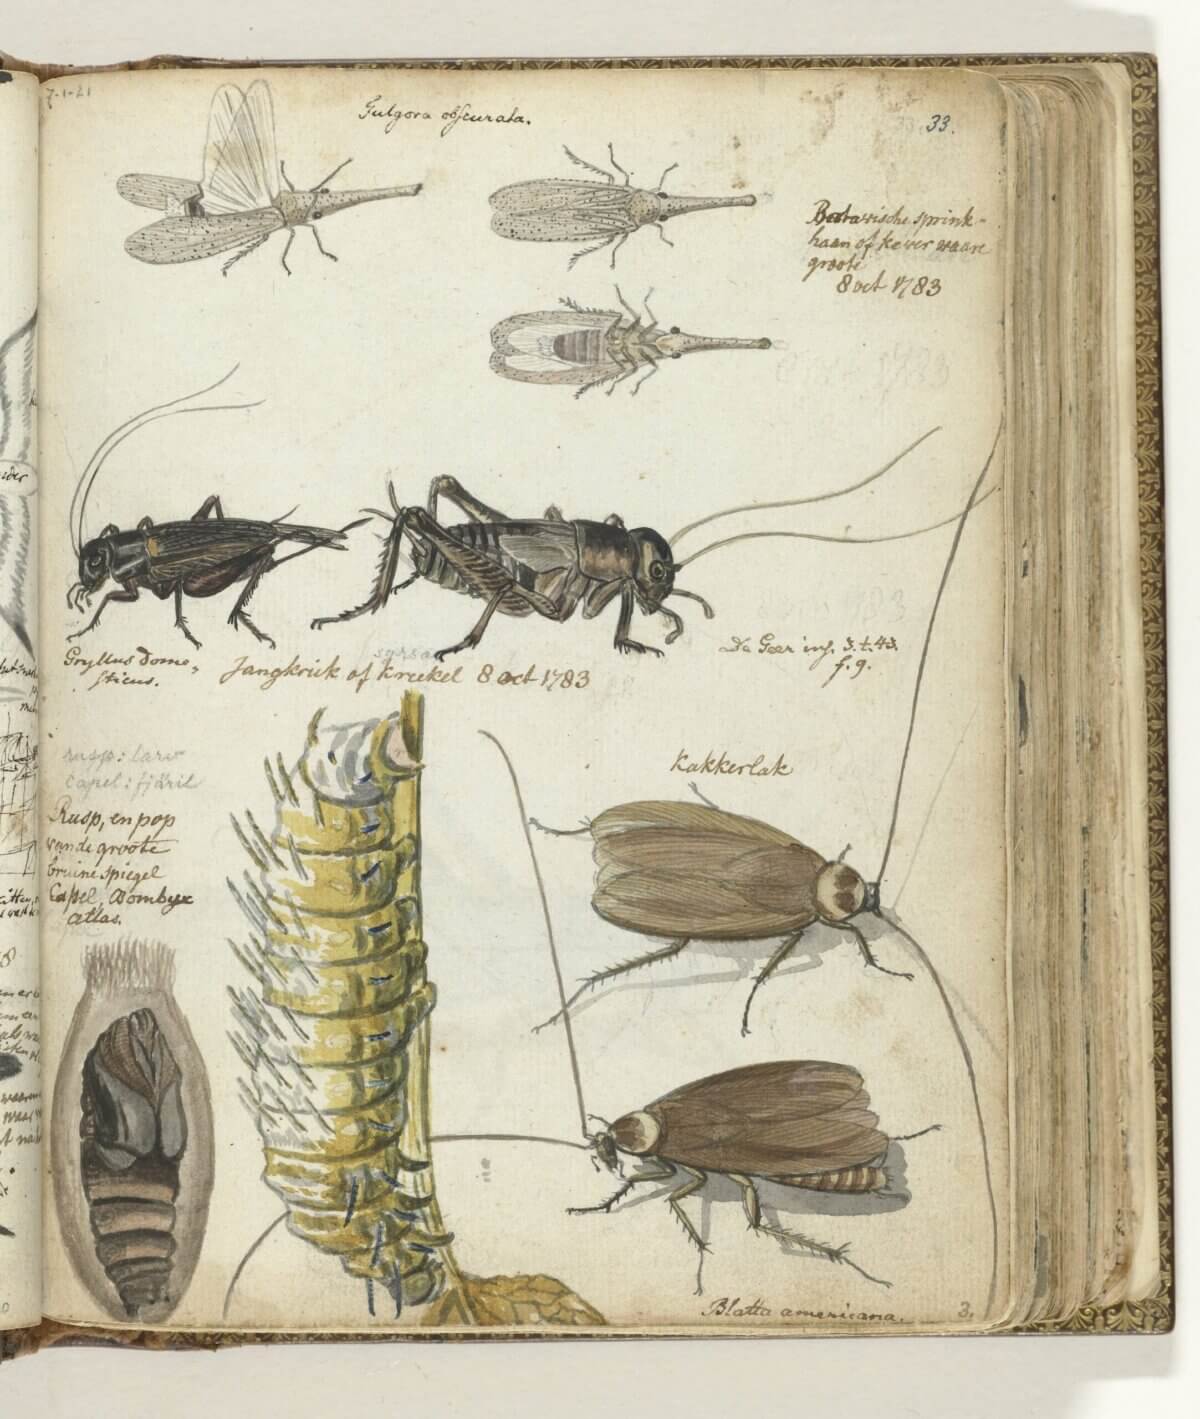 7-1-21
Fulgora obscurata.
33.
Batavische sprink-
haan of kever waare
groote
8 oct 1783
Gryllus dome-
sticus.
Jangkrik of kriekel 8 oct 1783
De Geer ins. 3. t. 43.
f. 9.
rusp: larv
capel: fjäril
Rusp, en pop
van de groote
bruine spiegel
Capel, Bombyx
atlas.
Kakkerlak
Blatta americana.
3.